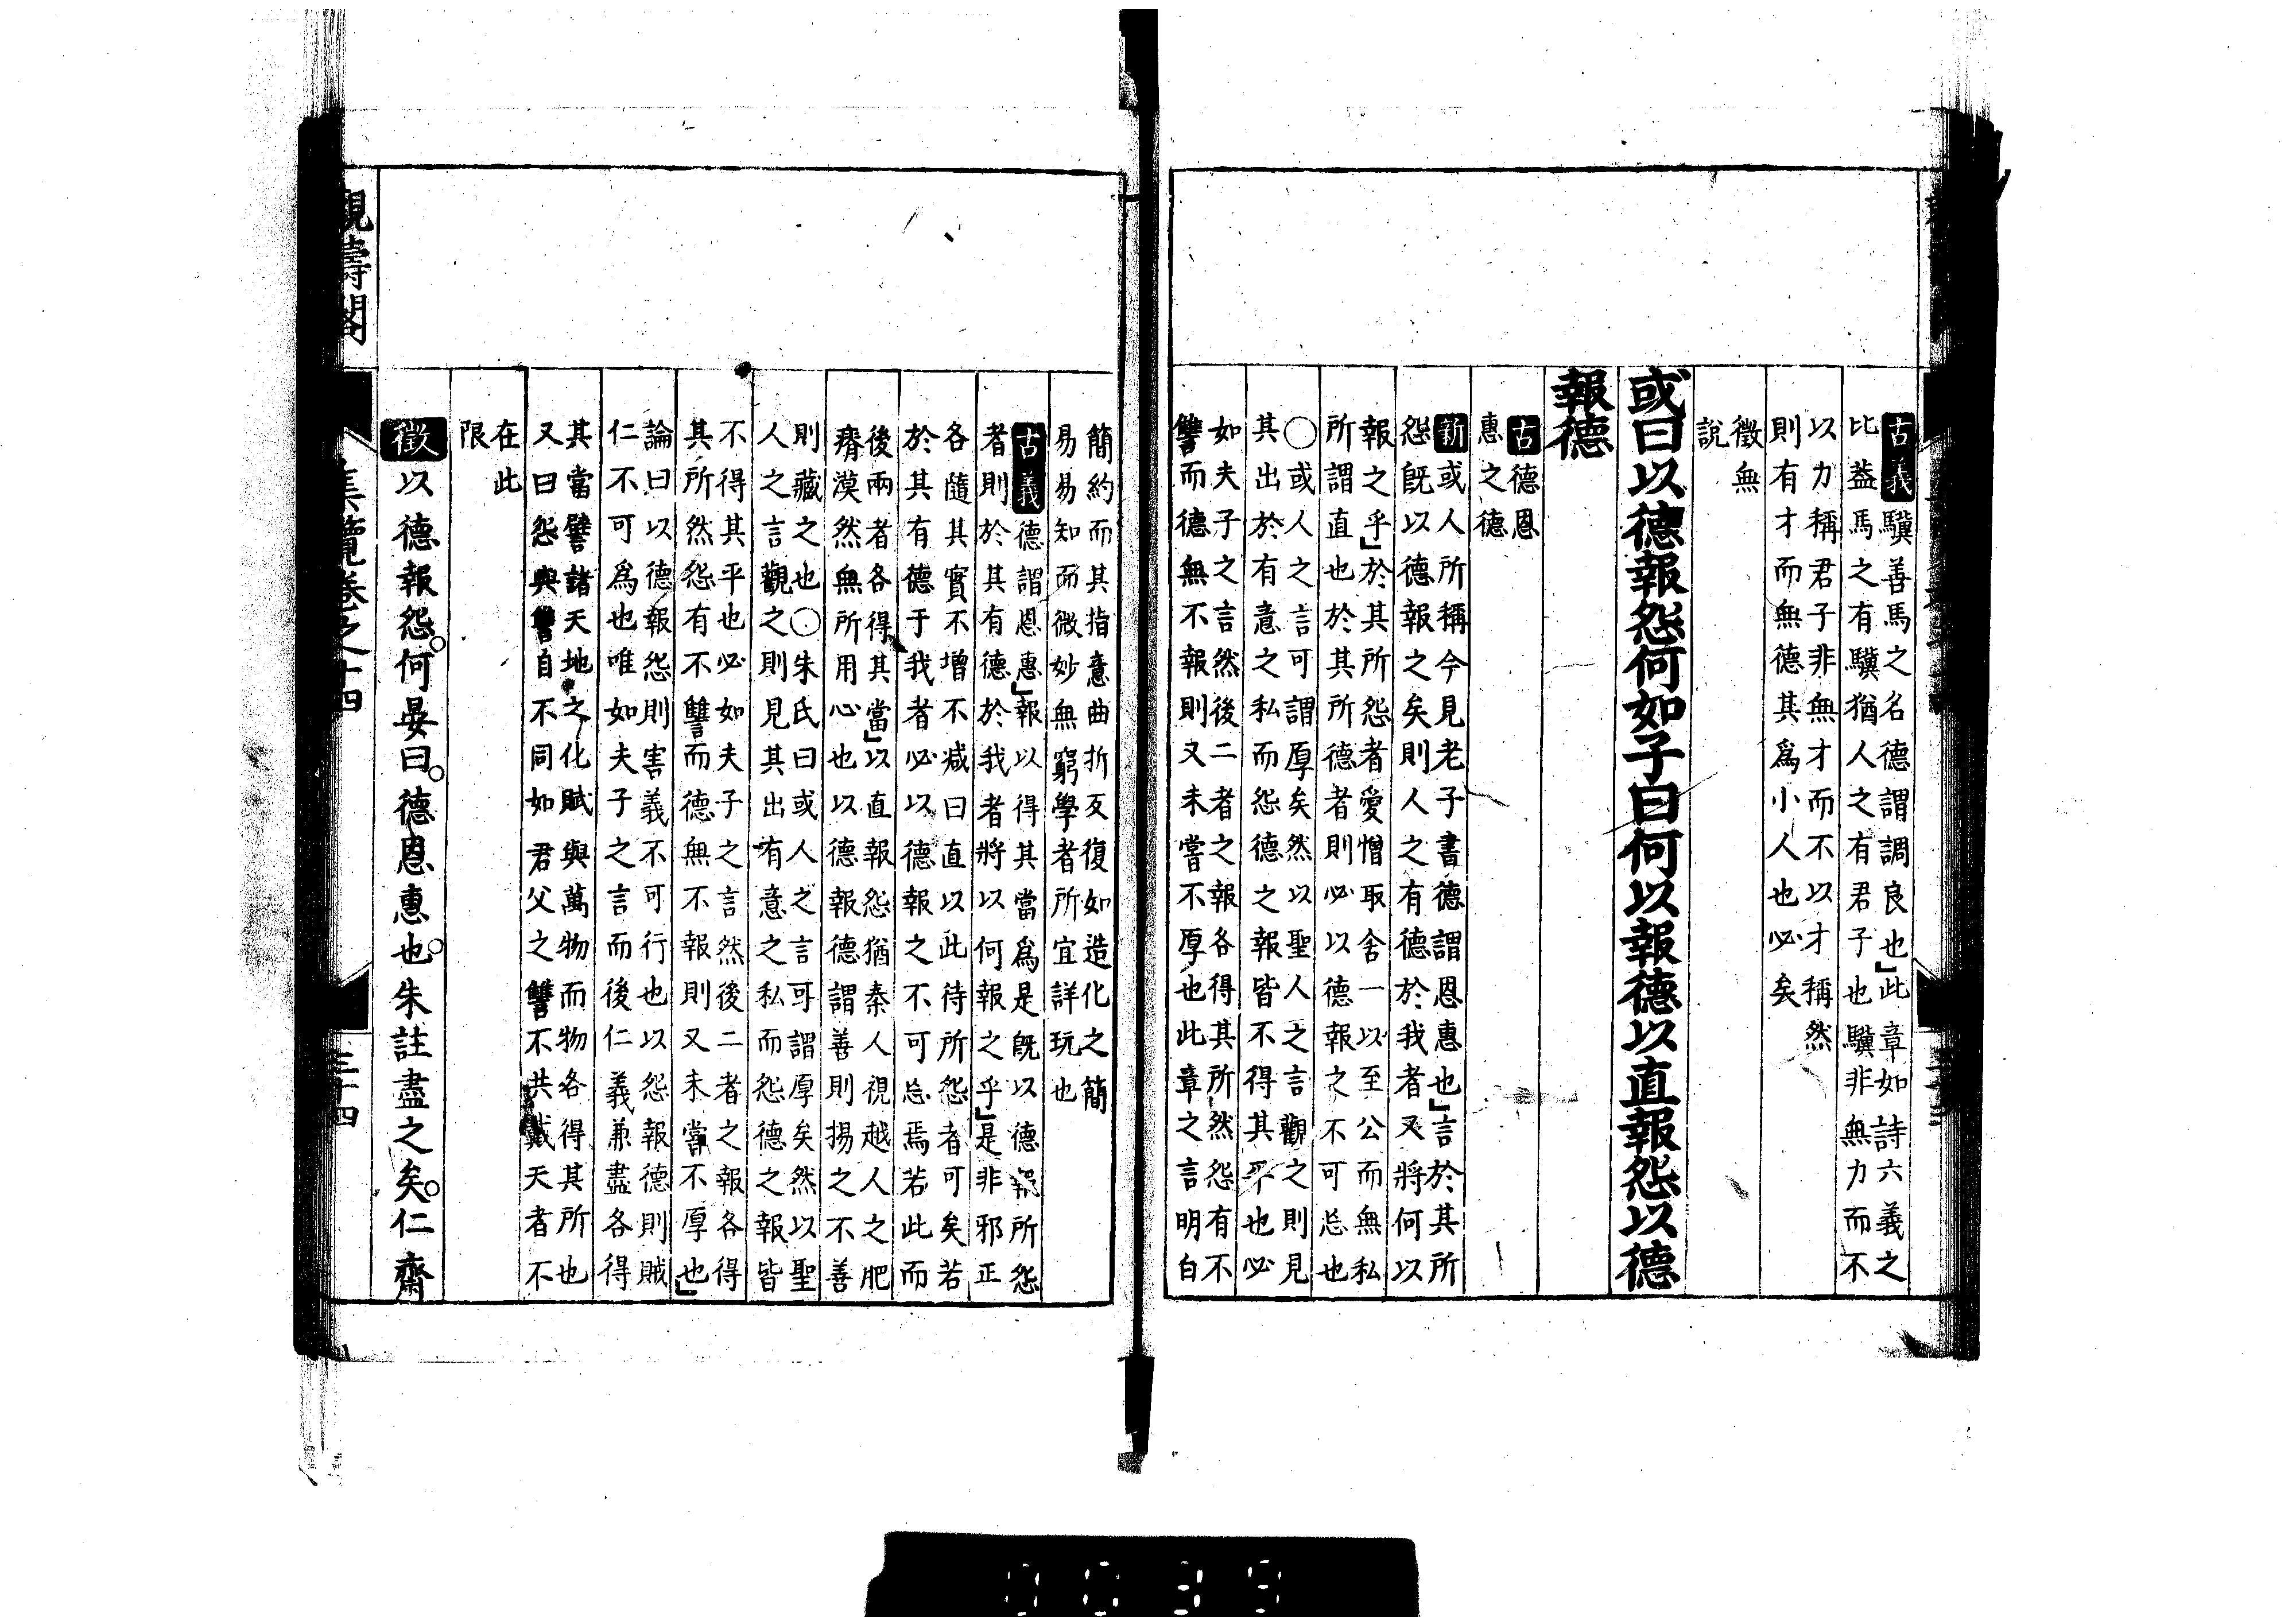 古義驥善馬之名德謂調良也」此章如詩六義之
比蓋馬之有驥猶人之有君子也驥非無力而不
以力稱君子非無才而不以才稱然
則有才而無德其爲小人也必矣
徵無
說
或曰以德報怨何如子曰何以報德以直報怨以德
報德
古德恩
惠之德
新或人所稱今見老子書德謂恩惠也」言於其所
怨旣以德報之矣則人之有德於我者又將何以
報之乎」於其所怨者愛憎取舍一以至公而無私
所謂直也於其所德者則必以德報之不可忘也
○或人之言可謂厚矣然以聖人之言觀之則見
其出於有意之私而怨德之報皆不得其平也必
如夫子之言然後二者之報各得其所然怨有不
讐而德無不報則又未嘗不厚也此章之言明白
簡約而其指意曲折反復如造化之簡
易易知而微妙無窮學者所宜詳玩也
古義德謂恩惠」報以得其當爲是旣以德報所怨
者則於其有德於我者將以何報之乎」是非邪正
各隨其實不增不减曰直以此待所怨者可矣若
於其有德于我者必以德報之不可忘焉若此而
後兩者各得其當」以直報怨猶秦人視越人之肥
瘠漠然無所用心也以德報德謂善則揚之不善
則藏之也○朱氏曰或人之言可謂厚矣然以聖
人之言觀之則見其出有意之私而怨德之報皆
不得其平也必如夫子之言然後二者之報各得
其所然怨有不讐而德無不報則又未嘗不厚也」
論曰以德報怨則害義不可行也以怨報德則賊
仁不可爲也唯如夫子之言而後仁義兼盡各得
其當譬諸天地之化賦與萬物而物各得其所也
又曰怨與讐自不同如君父之讐不共戴天者不
在此
限
徵以德報怨○何晏曰○德恩惠也○朱註盡之矣○仁齋
觀濤閣
集覽卷之十四
三十四
0039